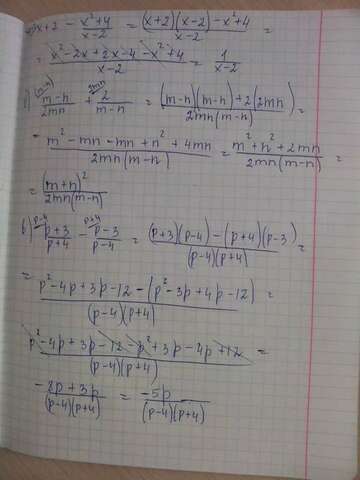 x+2 - \frac{x^2+4}{x-2} = \frac{(x+2)(x-2)-x^2+4}{x-2} =
= \frac{x^2-2x+2x-4-x^2+4}{x-2} = \frac{1}{x-2}
\frac{m-n}{2mn} + \frac{2}{m-n} = \frac{(m-n)(m-n)+2(2mn)}{2mn(m-n)} =
= \frac{m^2-mn-mn+n^2+4mn}{2mn(m-n)} = \frac{m^2+n^2+2mn}{2mn(m-n)} =
= \frac{(m+n)^2}{2mn(m-n)}
в) \frac{p+3}{p+4} - \frac{p-3}{p-4} = \frac{(p+3)(p-4)-(p+4)(p-3)}{(p-4)(p+4)} =
= \frac{p^2-4p+3p-12-(p^2-3p+4p-12)}{(p-4)(p+4)} =
\frac{p^2-4p+3p-12-p^2+3p-4p+12}{(p-4)(p+4)} =
\frac{-8p+3p}{(p-4)(p+4)} = \frac{-5p}{(p-4)(p+4)}